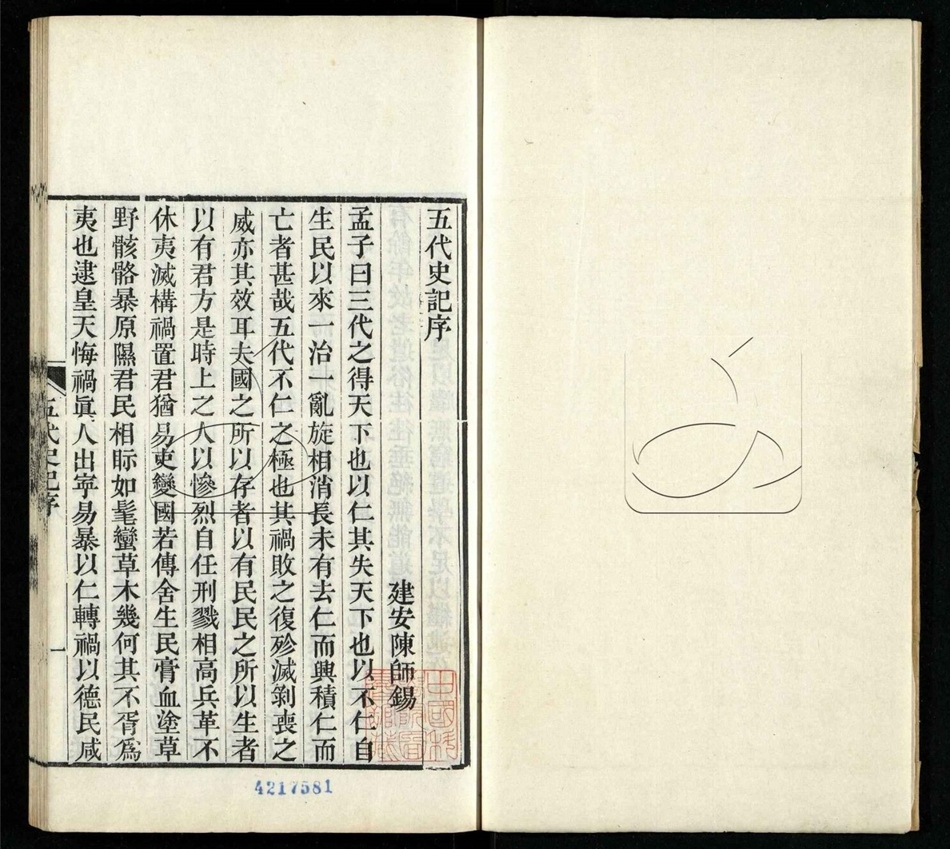 五代史記序
建安陳師錫
孟子曰三代之得天下也以仁其失天下也以不仁自
生民以來一治一亂旋相消長未有去仁而興積仁而
亡者甚哉五代不仁之極也其禍敗之復殄滅剝喪之
威亦其效耳夫國之所以存者以有民民之所以生者
以有君方是時上之人以慘烈自任刑戮相高兵革不
休夷滅構禍置君猶易吏變國若傳舍生民膏血塗草
野骸骼暴原隰君民相眎如髦蠻草木幾何其不胥爲
夷也逮皇天悔禍眞人出寧易暴以仁轉禍以德民咸
五代史記序
一
4217581